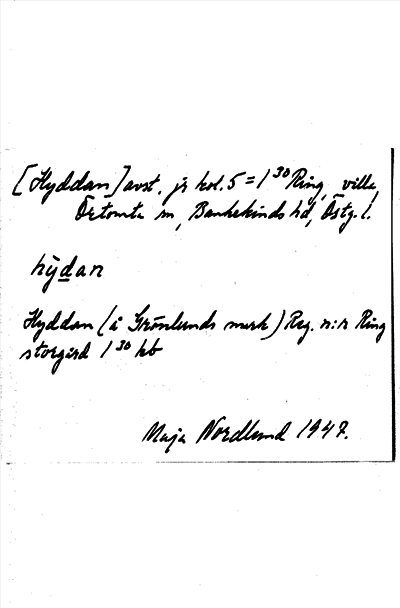 [Hyddan] avst. jr kol. 5 = 1³⁰ Ring, villa,
Örtomta sn, Bankekinds hd, Östg. l.
hy̆dan
Hyddan (å Grönlunds mark) Reg. n:r Ring
storgård 1³⁰ kb
Maja Nordlund 1947.